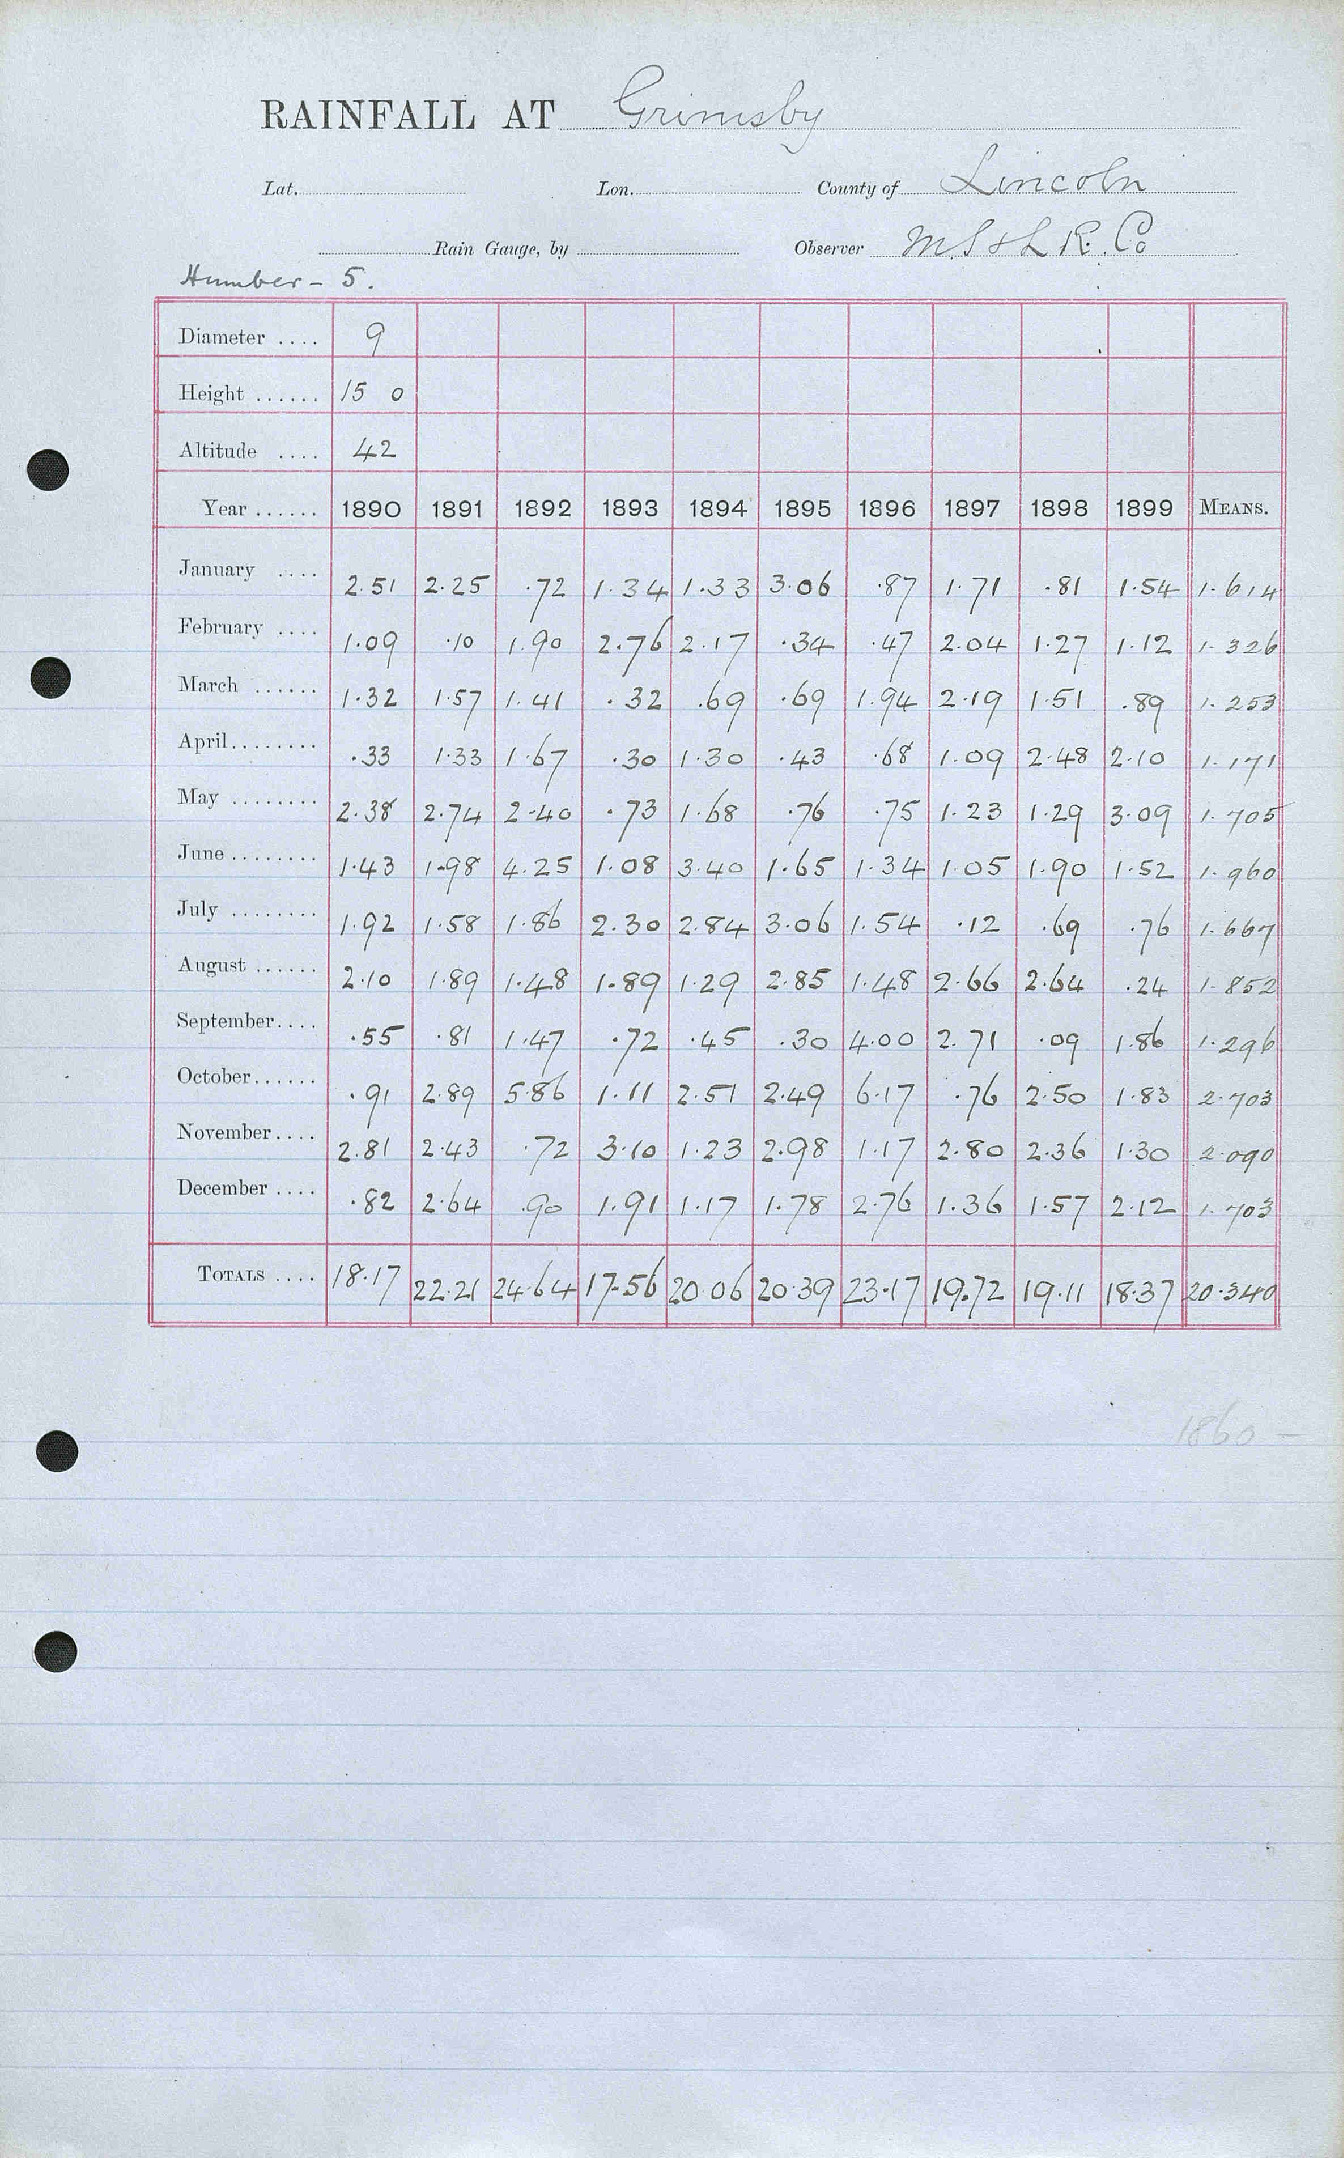 RAINFALL AT Grimsby
Lat. Lon. County of Lincoln
Rain Gauge, by Observer M.S & L R. Co
Humber - 5.
Diameter .... 9
Height ...... 15 0
Altitude .... 42
Year ...... 1890 1891 1892 1893 1894 1895 1896 1897 1898 1899 MEANS.
January .... 2.51 2.25 .72 1.34 1.33 3.06 .87 1.71 .81 1.54 1.614
February .... 1.09 .10 1.90 2.76 2.17 .34 .47 2.04 1.27 1.12 1.326
March ...... 1.32 1.57 1.41 .32 .69 .69 1.94 2.19 1.51 .89 1.253
April ........ .33 1.33 1.67 .30 1.30 .43 .68 1.09 2.48 2.10 1.171
May ........ 2.38 2.74 2.40 .73 1.68 .76 .75 1.23 1.29 3.09 1.705
June ........ 1.43 1.98 4.25 1.08 3.40 1.65 1.34 1.05 1.90 1.52 1.960
July ........ 1.92 1.58 1.86 2.30 2.84 3.06 1.54 .12 .69 .76 1.667
August ...... 2.10 1.89 1.48 1.89 1.29 2.85 1.48 2.66 2.64 .24 1.852
September .... .55 .81 1.47 .72 .45 .30 4.00 2.71 .09 1.86 1.296
October ...... .91 2.89 5.86 1.11 2.51 2.49 6.17 .76 2.50 1.83 2.703
November .... 2.81 2.43 .72 3.10 1.23 2.98 1.17 2.80 2.36 1.30 2.090
December .... .82 2.64 .90 1.91 1.17 1.78 2.76 1.36 1.57 2.12 1.703
TOTALS .... 18.17 22.21 24.64 17.56 20.06 20.39 23.17 19.72 19.11 18.37 20.340
1860 -